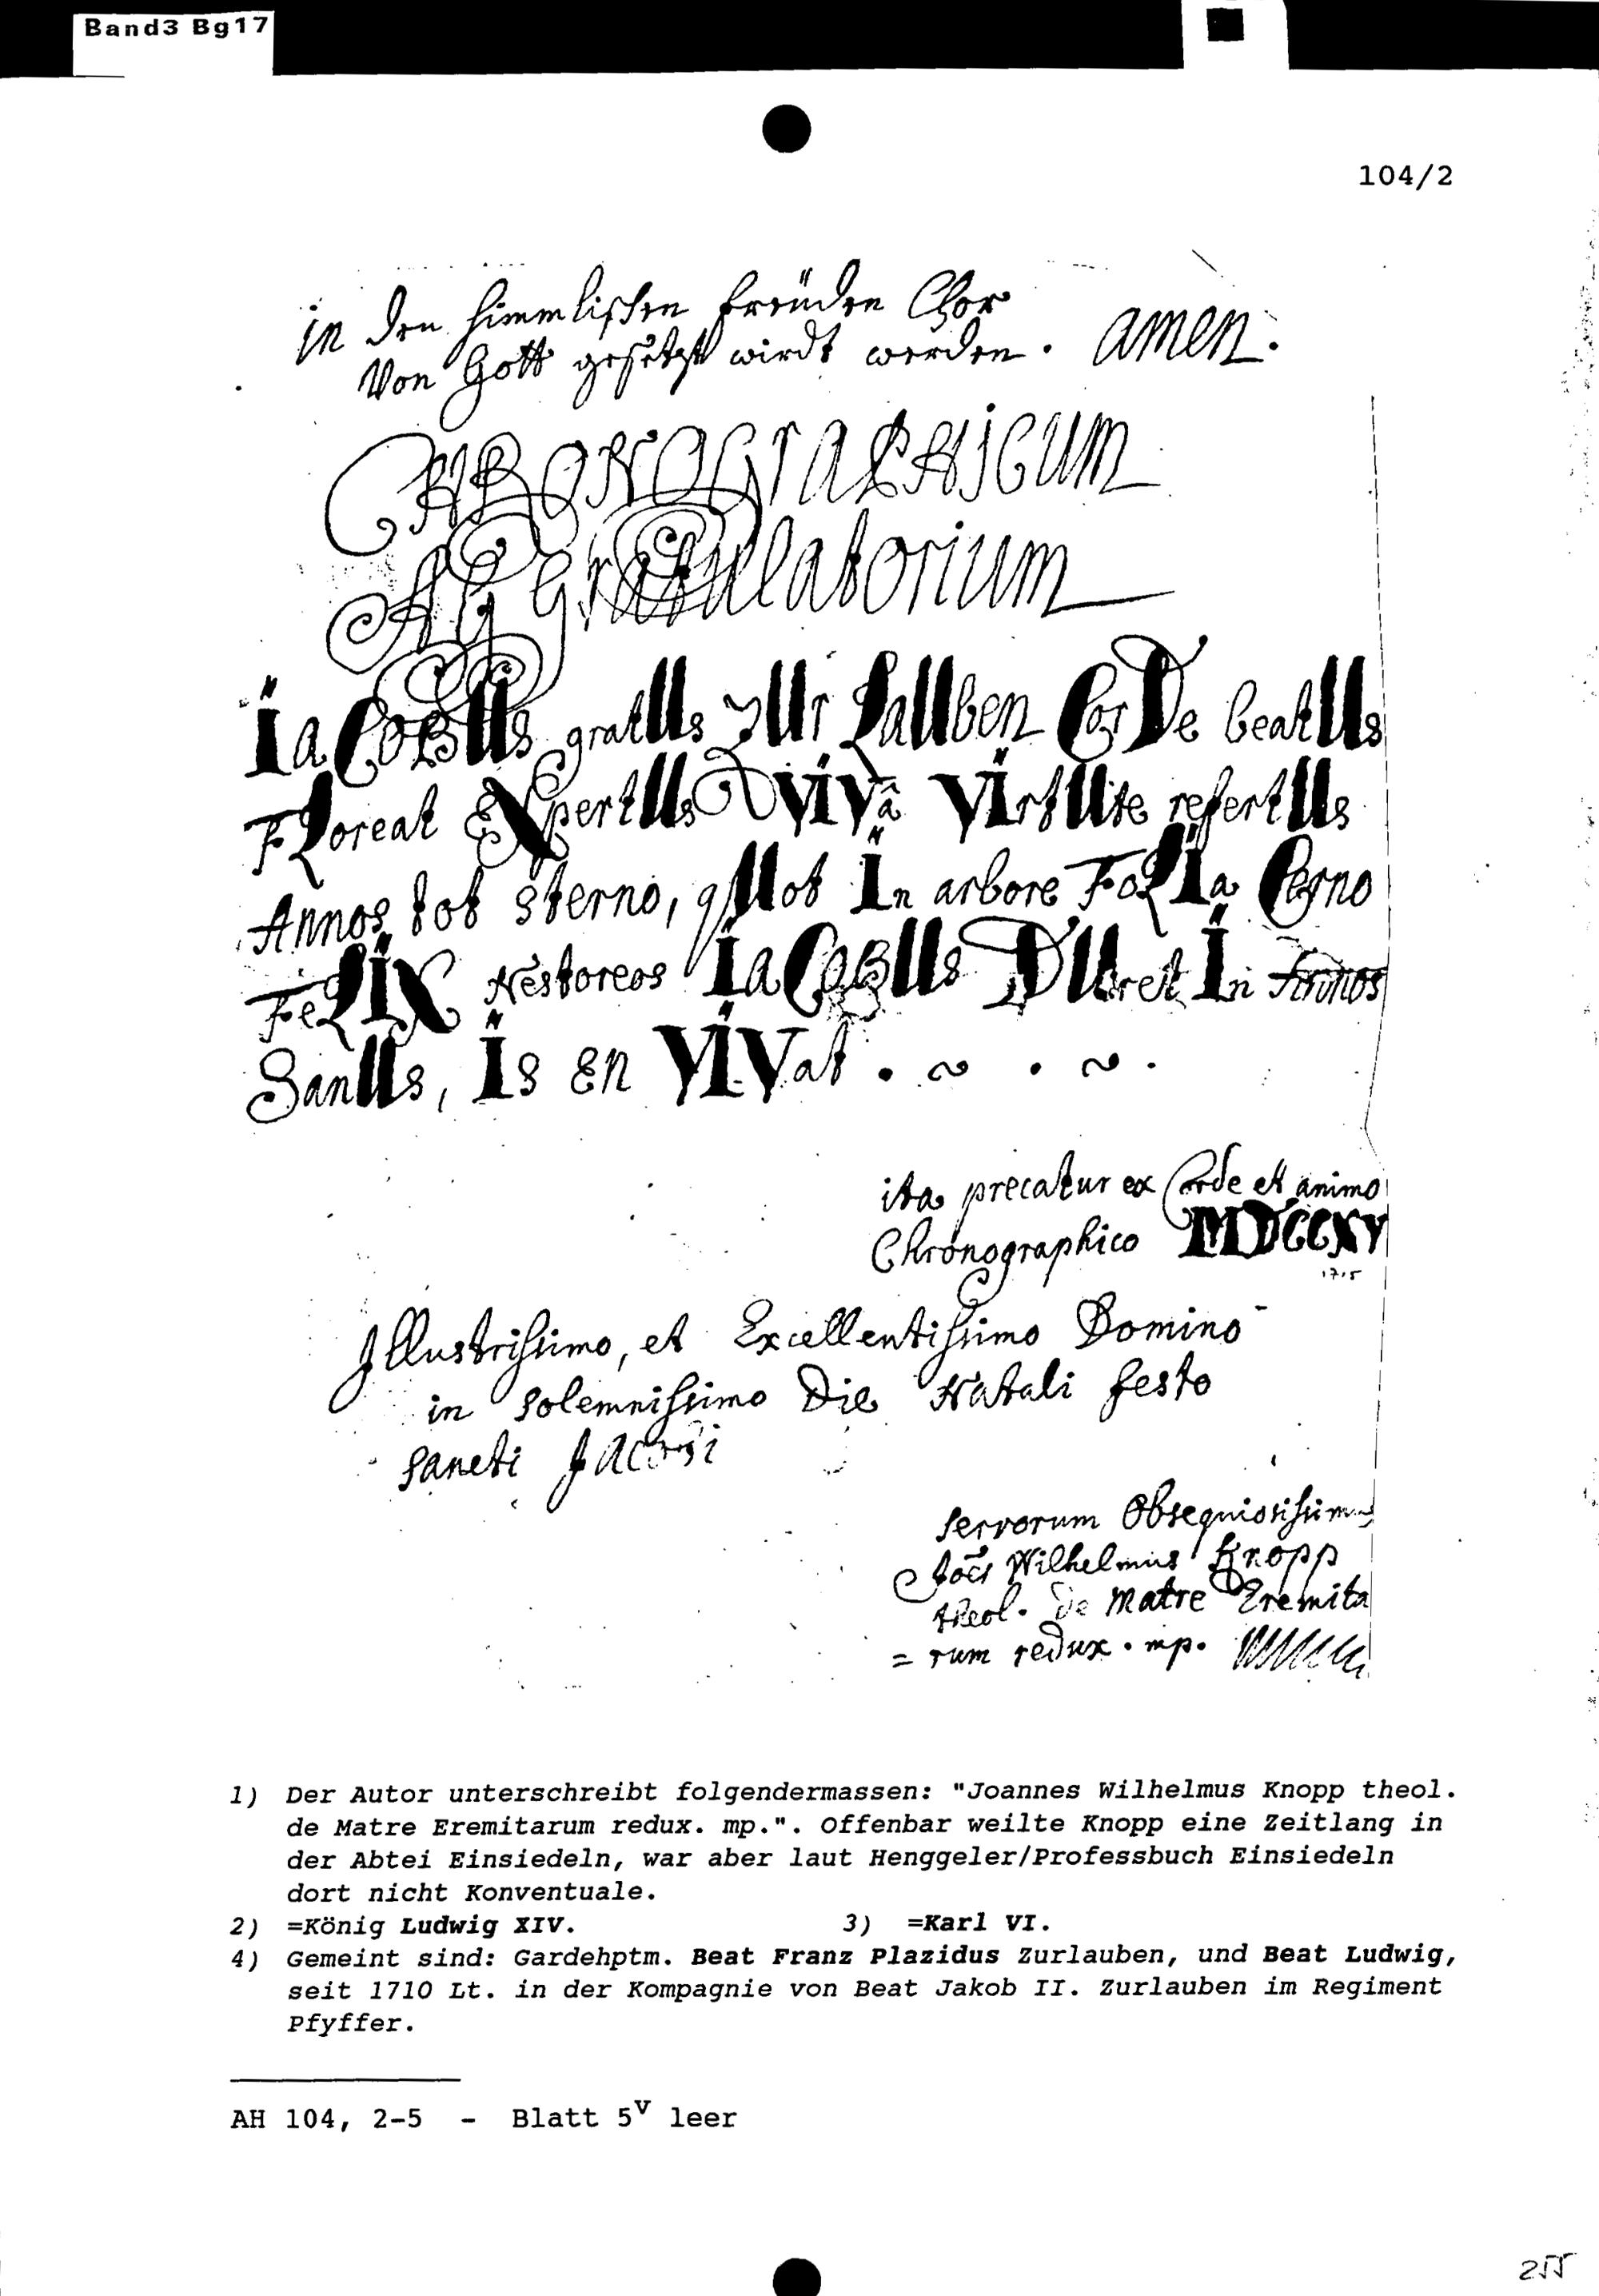 Band3 Bg17
104/2
in den himmlischen freüden Chor
Von Gott gesetzt wirdt werden. amen.
CHRONOGRAPHICUM
Gratulatorium
IaCobUs gratUs zUr LaUben CorDe beatUs
FLoreat EXpertUs VIVâ VIrtUte refertUs
Annos tot sterno, qUot In arbore FoLIa Cerno
FeLIX Nestoreos IaCobUs DUret In Annos
SanUs, Is en VIVat.
ita precatur ex Corde et animo
Chronographico MDCCXV
1715
Illustrissimo, et Excellentissimo Domino
in solemnissimo Die Natali festo
sancti Jacobi
servorum Obsequiosissimus
Joês Wilhelmus Knopp
theol. de Matre Eremita
= rum redux. mp.
1) Der Autor unterschreibt folgendermassen: "Joannes Wilhelmus Knopp theol.
de Matre Eremitarum redux. mp.". Offenbar weilte Knopp eine Zeitlang in
der Abtei Einsiedeln, war aber laut Henggeler/Professbuch Einsiedeln
dort nicht Konventuale.
2) =König Ludwig XIV. 3) =Karl VI.
4) Gemeint sind: Gardehptm. Beat Franz Plazidus Zurlauben, und Beat Ludwig,
seit 1710 Lt. in der Kompagnie von Beat Jakob II. Zurlauben im Regiment
Pfyffer.
AH 104, 2-5 - Blatt 5v leer
255